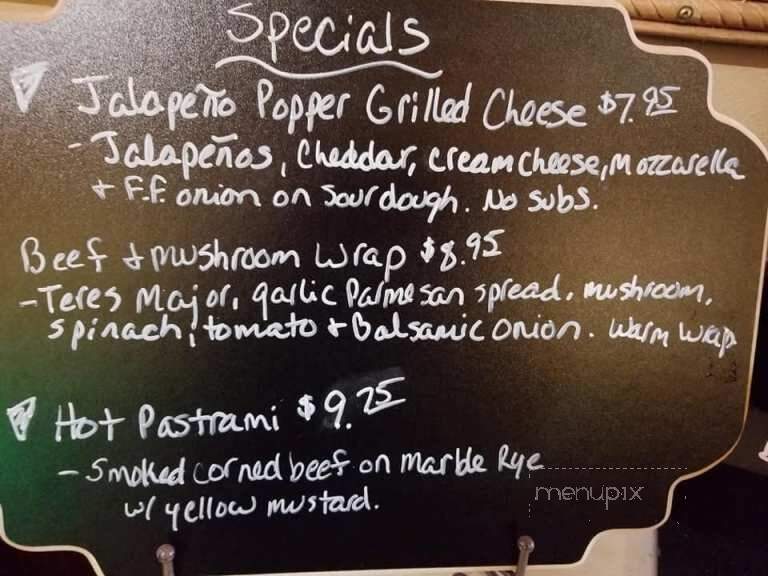 Specials
Jalapeño Popper Grilled Cheese $7.95
- Jalapeños, Cheddar, cream cheese, mozzarella
+ F.F. onion on Sourdough. No subs.
Beef + mushroom wrap $8.95
- Teres Major, garlic Parmesan spread, mushroom,
spinach, tomato + Balsamic onion. Warm wrap
Hot Pastrami $9.25
- Smoked corned beef on marble Rye
w/ yellow mustard.
menupix